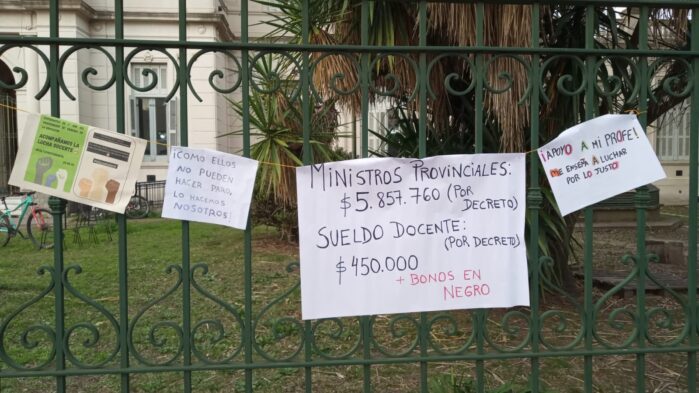 ACOMPAÑAMOS LA
LUCHA DOCENTE
¡COMO ELLOS
NO PUEDEN
HACER PARO,
LO HACEMOS
NOSOTROS!
MINISTROS PROVINCIALES:
$5.857.760 (POR
DECRETO)
SUELDO DOCENTE:
(POR DECRETO)
$450.000
+ BONOS EN
NEGRO
¡APOYO A MI PROFE!
ME ENSEÑA A LUCHAR
POR LO JUSTO